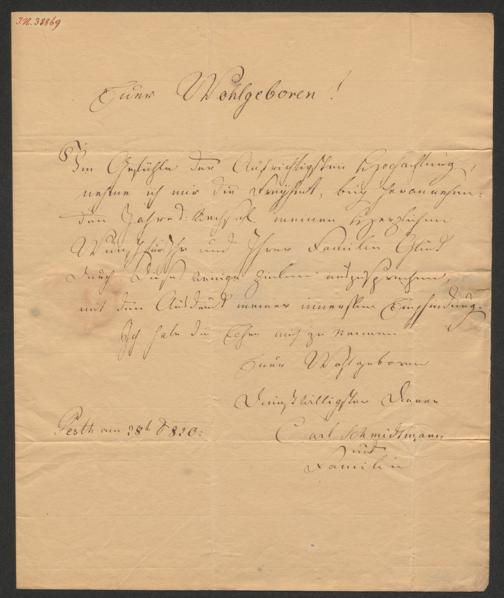 I.N. 38869
Euer Wohlgeboren!
Im Gefühle der Aufrichtigsten Hochachtung,
nehme ich mir die Freyheit, bey herannahen-
den Jahres-Wechsel meinen herzlichen
Wunsch für Ihr und Ihrer Familien Glück
durch diese wenige Zeilen auszusprechen,
mit dem Ausdruck meiner innersten Empfindung.
Ich habe die Ehre mich zu nennen
Euer Wohlgeboren
Dienstwilligster Diener
Carl Schmidtmann
und
Familie
Pesth am 28t